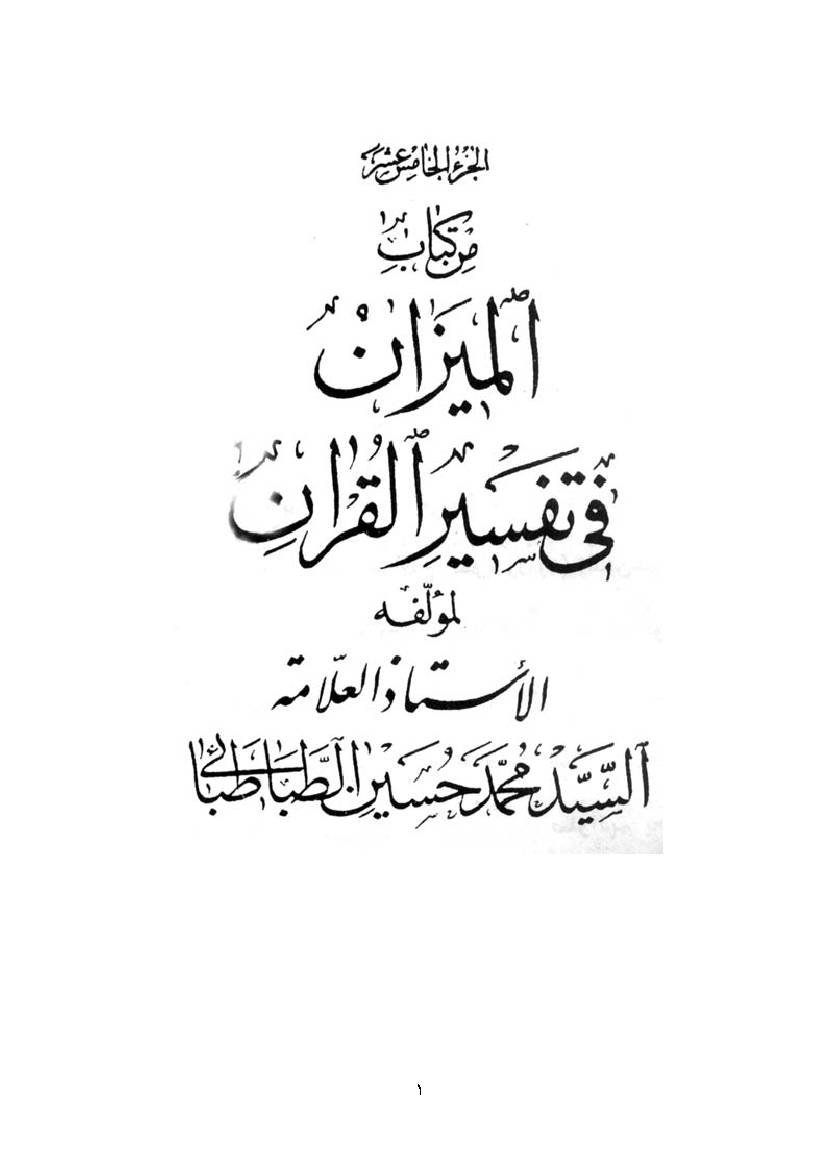 الجزء الخامس عشر
من كتاب
الميزان
في تفسير القرآن
لمؤلفه
الأستاذ العلامة
السيد محمد حسين الطباطبائي
١